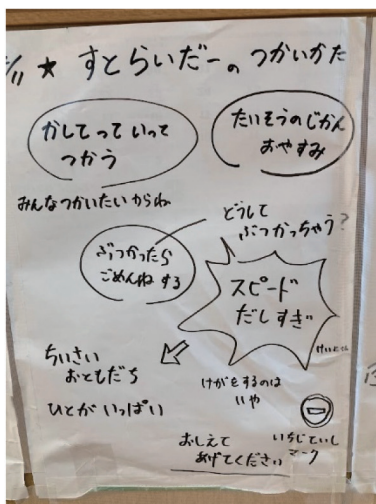 /11 ★ すとらいだーの つかいかた
かしてって いって
つかう
たいそうのじかん
おやすみ
みんなつかいたいからね
どうして
ぶつかっちゃう?
ぶつかったら
ごめんね する
スピード
だしすぎ
ちいさい
おともだち
ひとが いっぱい
けがをするのは
いや
おしえて
あげてください
いちじていし
マーク